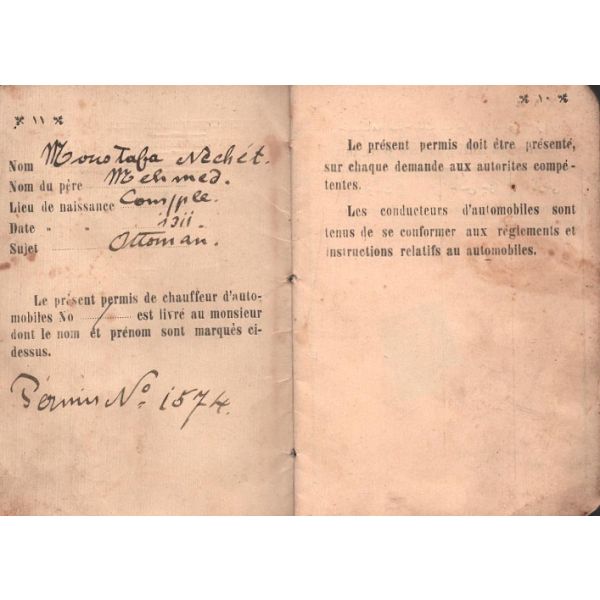 * ١١ *
Nom Moustafa Nechét.
Nom du père Mehmed.
Lieu de naissance Consple.
Date „ „ 1311
Sujet Ottoman.
Le présent permis de chauffeur d'auto-
mobiles No / est livré au monsieur
dont le nom et prénom sont marqués ci-
dessus.
Pérmis No. 1574.
* ١٠ *
Le présent permis doit être présenté,
sur chaque demande aux autorites compé-
tentes.
Les conducteurs d'automobiles sont
tenus de se conformer aux règlements et
instructions relatifs au automobiles.